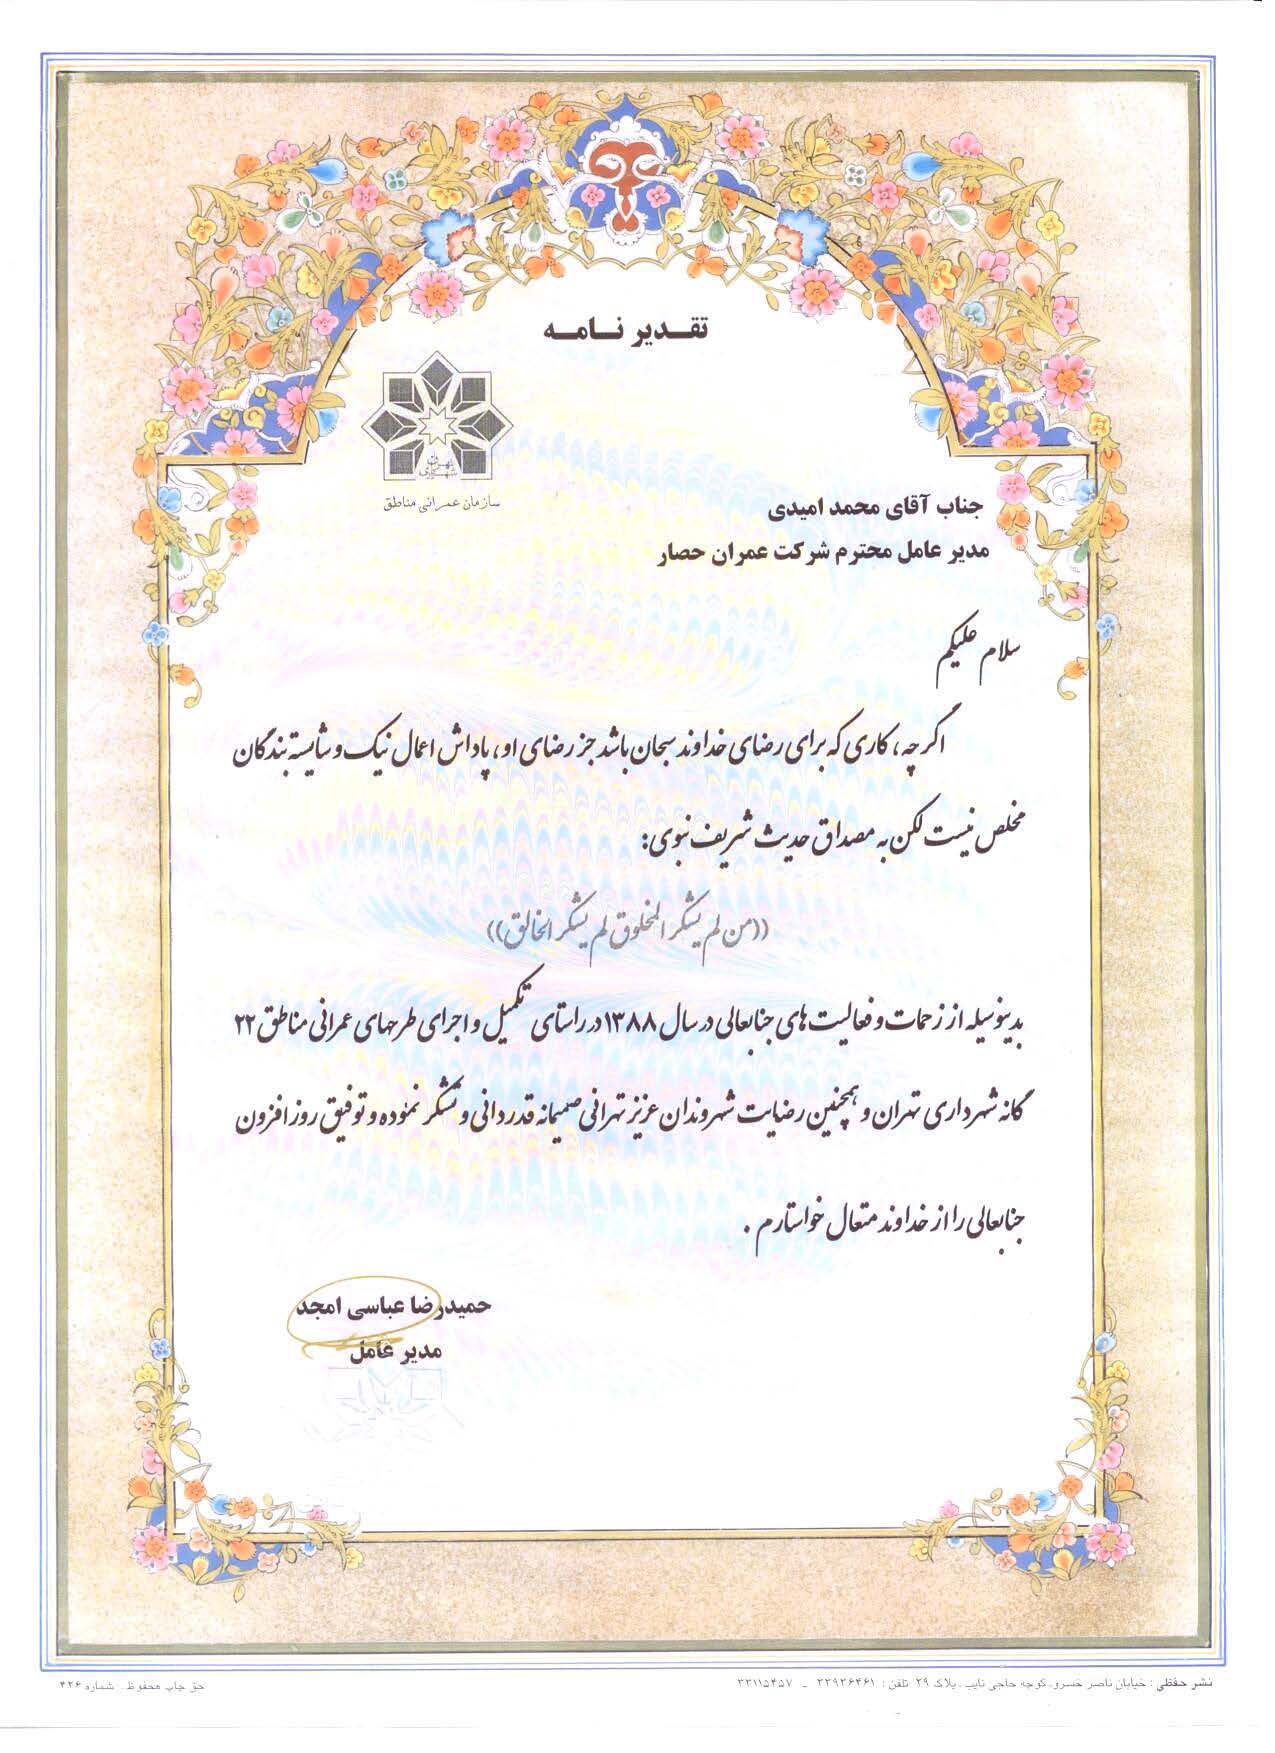 تقدیر نامه
شهرداری تهران
سازمان عمرانی مناطق
جناب آقای محمد امیدی
مدیر عامل محترم شرکت عمران حصار
سلام علیکم
اگرچه، کاری که برای رضای خداوند سبحان باشد جز رضای او، پاداش اعمال نیک و شایسته بندگان
مخلص نیست لکن به مصداق حدیث شریف نبوی:
((من لم یشکر المخلوق لم یشکر الخالق))
بدینوسیله از زحمات و فعالیت های جنابعالی در سال ۱۳۸۸ در راستای تکمیل و اجرای طرحهای عمرانی مناطق ۲۲
گانه شهرداری تهران و همچنین رضایت شهروندان عزیز تهرانی صمیمانه قدردانی و تشکر نموده و توفیق روز افزون
جنابعالی را از خداوند متعال خواستارم .
حمیدرضا عباسی امجد
مدیر عامل
نشر حفظی : خیابان ناصر خسرو، کوچه حاجی نایب، پلاک ۲۹ تلفن : ۳۳۹۳۶۴۶۱ ـ ۳۳۱۱۵۴۵۷
حق چاپ محفوظ . شماره ۴۲۶